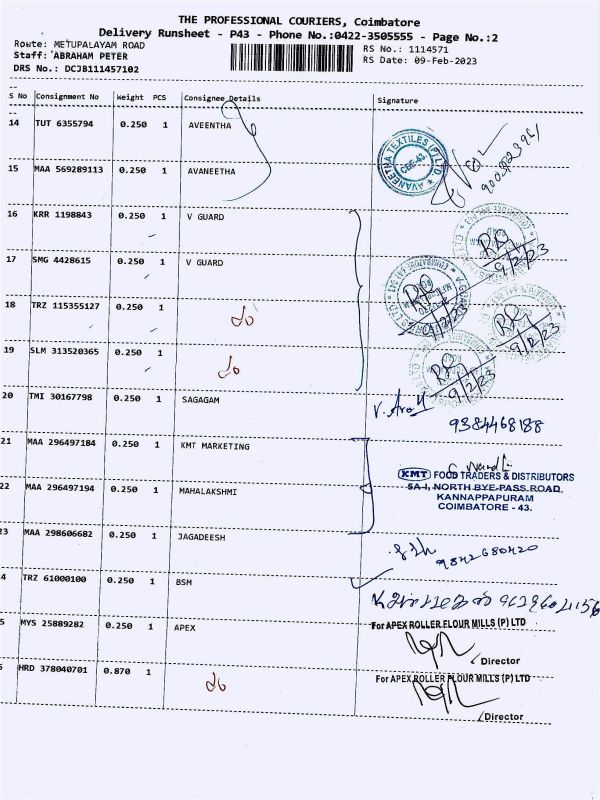 THE PROFESSIONAL COURIERS, Coimbatore
Delivery Runsheet - P43 - Phone No.:0422-3505555 - Page No.:2
Route: METUPALAYAM ROAD
RS No.: 1114571
Staff: ABRAHAM PETER
RS Date: 09-Feb-2023
DRS No.: DCJB111457102
S No Consignment No Weight PCS Consignee Details Signature
14 TUT 6355794 0.250 1 AVEENTHA
AVANEETHA TEXTILES (P) LTD
CBE-43.
15 MAA 569289113 0.250 1 AVANEETHA
16 KRR 1198843 0.250 1 V GUARD
9/2/23
17 SMG 4428615 0.250 1 V GUARD
9/2/23
18 TRZ 115355127 0.250 1 do
9/2/23
19 SLM 313520365 0.250 1 do
9/2/23
20 TMI 30167798 0.250 1 SAGAGAM
9384468188
21 MAA 296497184 0.250 1 KMT MARKETING
KMT FOOD TRADERS & DISTRIBUTORS
5A-I, NORTH BYE-PASS ROAD,
KANNAPPAPURAM
COIMBATORE - 43.
22 MAA 296497194 0.250 1 MAHALAKSHMI
23 MAA 298606682 0.250 1 JAGADEESH
9842680420
4 TRZ 61000100 0.250 1 BSM
5 MYS 25889282 0.250 1 APEX
For APEX ROLLER FLOUR MILLS (P) LTD
Director
HRD 378040701 0.870 1 do
For APEX ROLLER FLOUR MILLS (P) LTD
Director